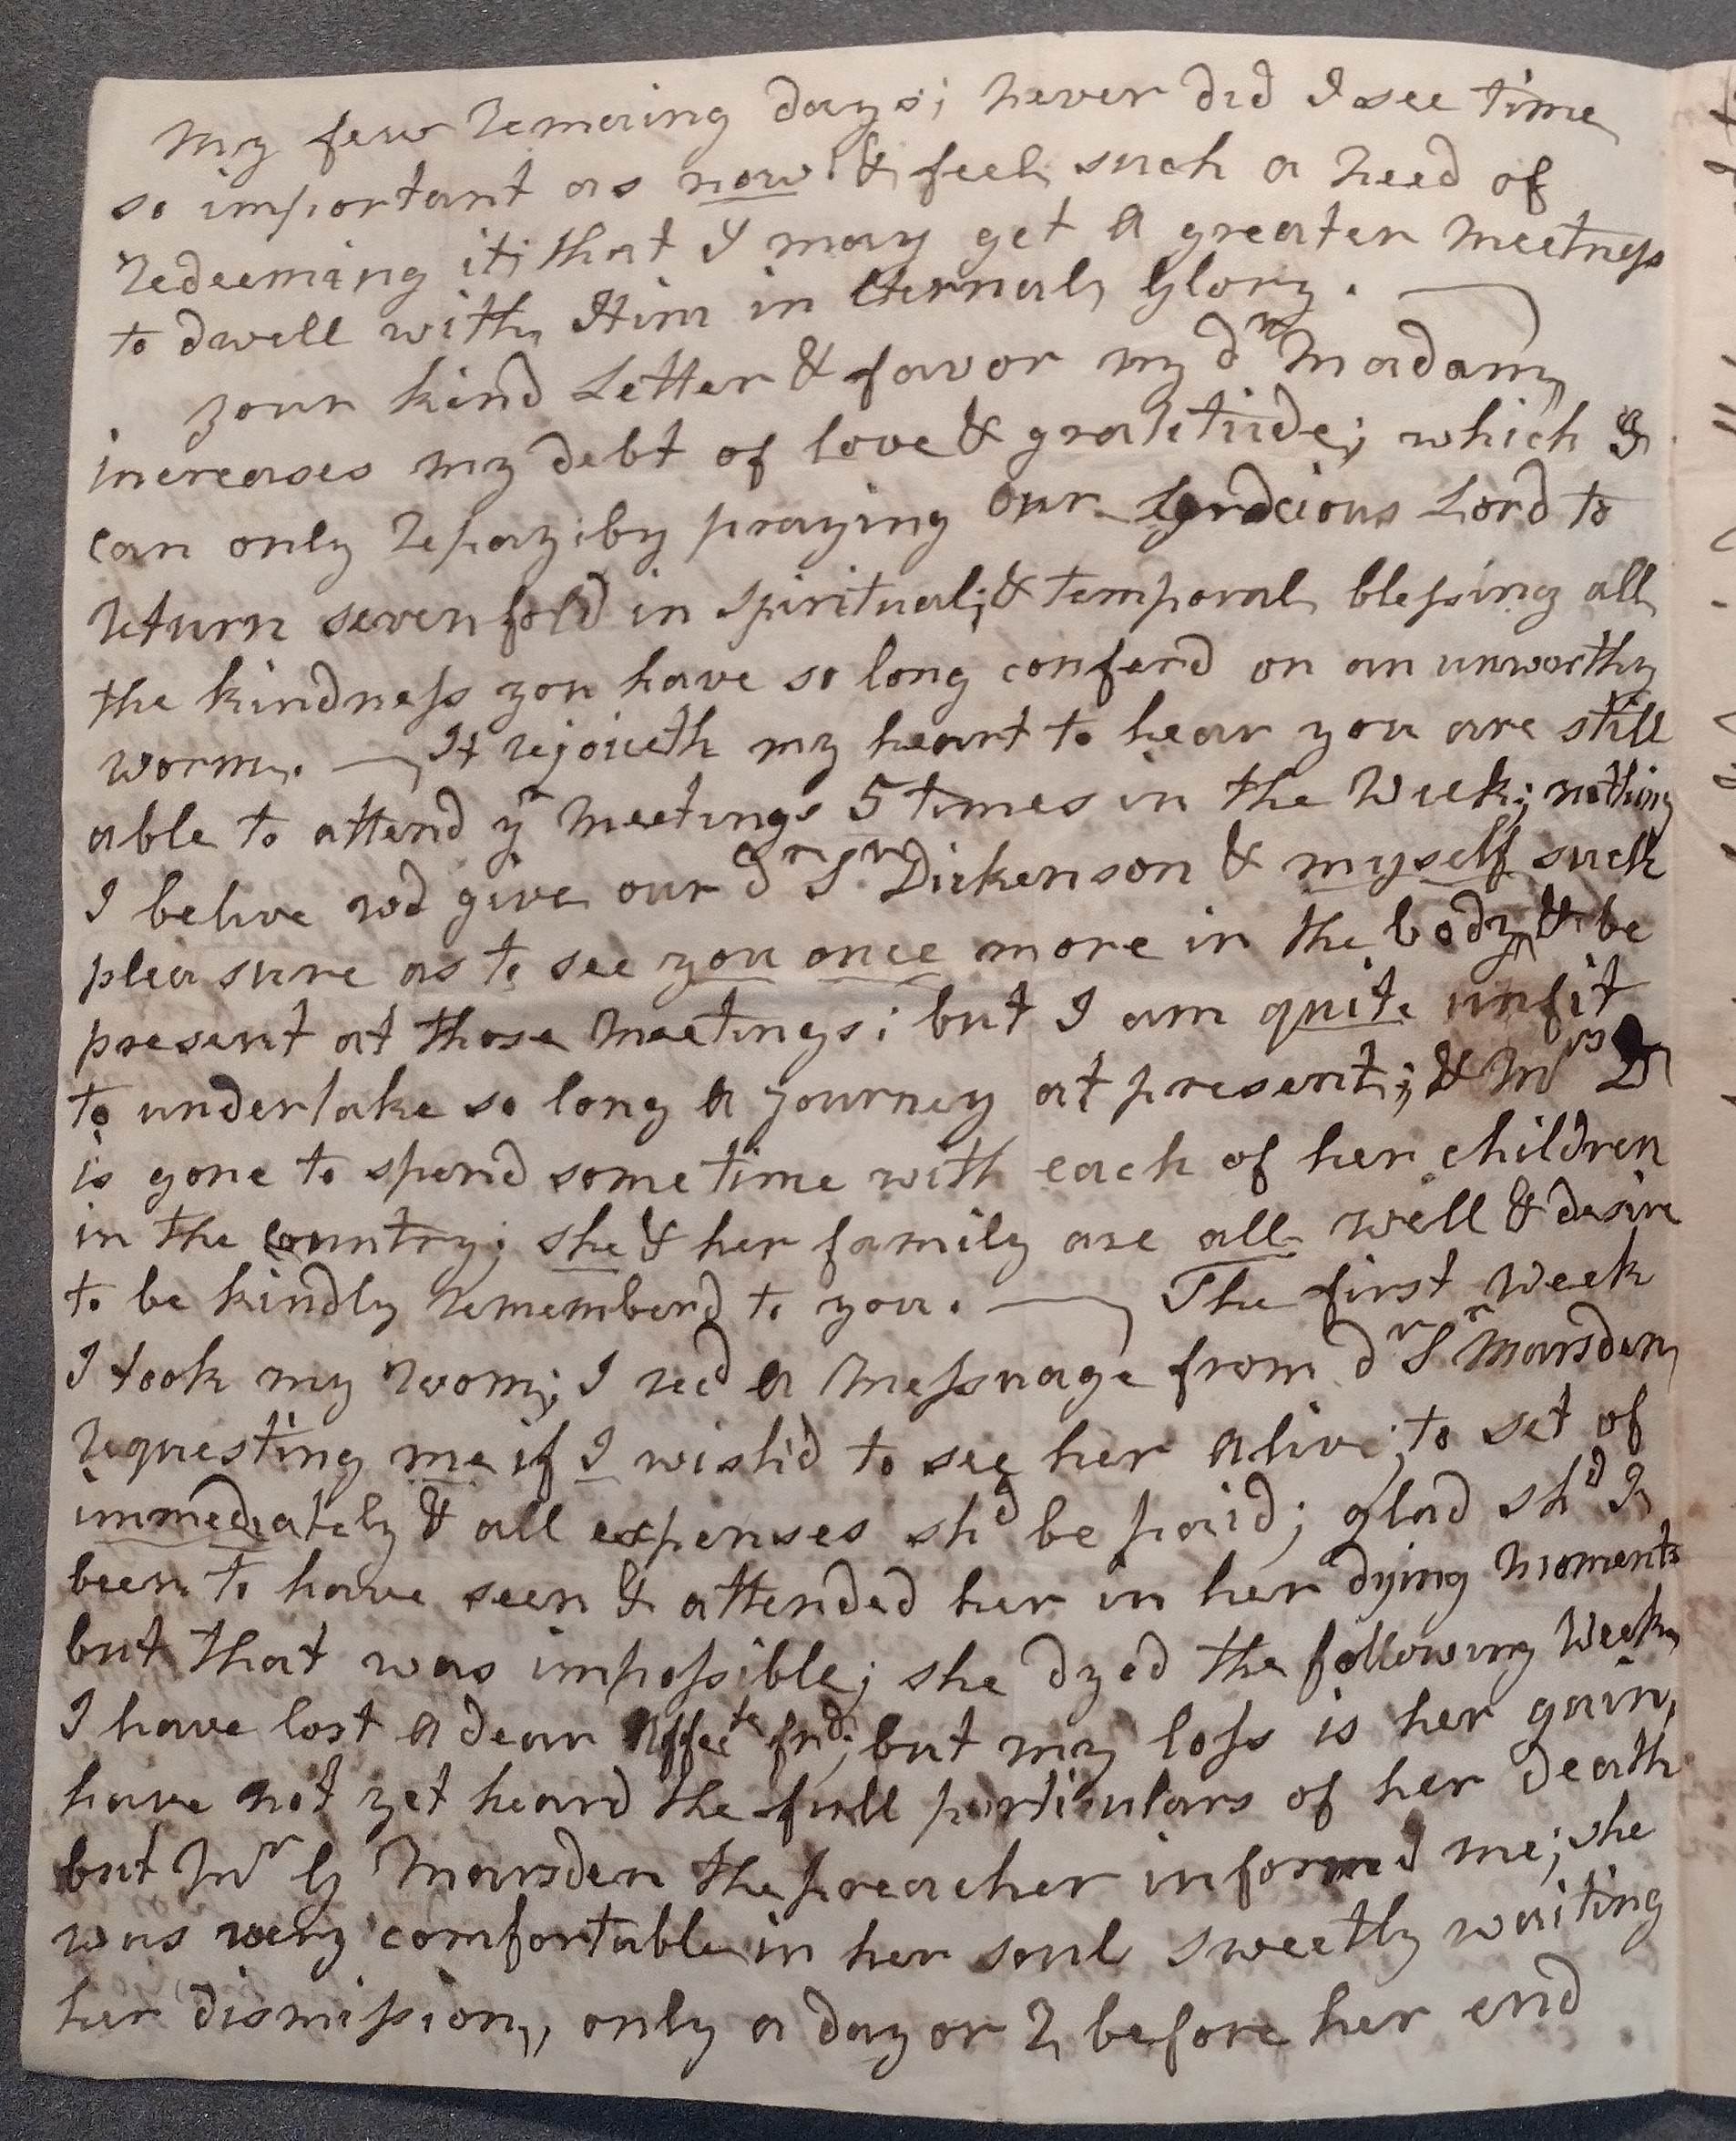 My few remaing days; never did I see time
so important as now! & feel such a need of
redeeming it; that I may get a greater Meetness
to dwell with Him in Eternal Glory. —
your kind Letter & favor my dr Madam,
increases my debt of love & gratitude; which I
can only repay; by praying our gracious Lord to
return sevenfold in spiritual; & temporal blessing all
the kindness you have so long conferd on an unworthy
worm. — It rejoiceth my heart to hear you are still
able to attend yr Meetings 5 times in the Week; nothing
I belive wd give our dr Sr Dickenson & myself such
pleasure as to see you once more in the body, & be
present at those Meetings; but I am quite unfit
to undertake so long a journey at present; & Mrs D
is gone to spend some time with each of her children
in the Country; she & her family are all well & desire
to be kindly rememberd to you. — The first Week
I took my room; I recd a Messuage from dr Sr Marsden
requesting me if I wish'd to see her alive; to set of
immediately & all expenses shd be paid; glad shd I
been to have seen & attended her in her dying moments
but that was impossible; she dyed the following Week,
I have lost a dear Affecte frd; but my loss is her gain,
have not yet heard the full particulars of her death
but Mr G Marsden the preacher informed me; she
was very comfortable in her soul sweetly waiting
her dismission, only a day or 2 before her end